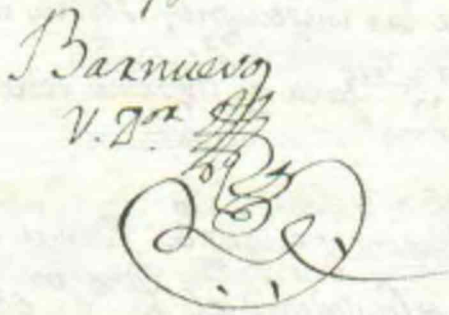 Barnuevo
V. Dor